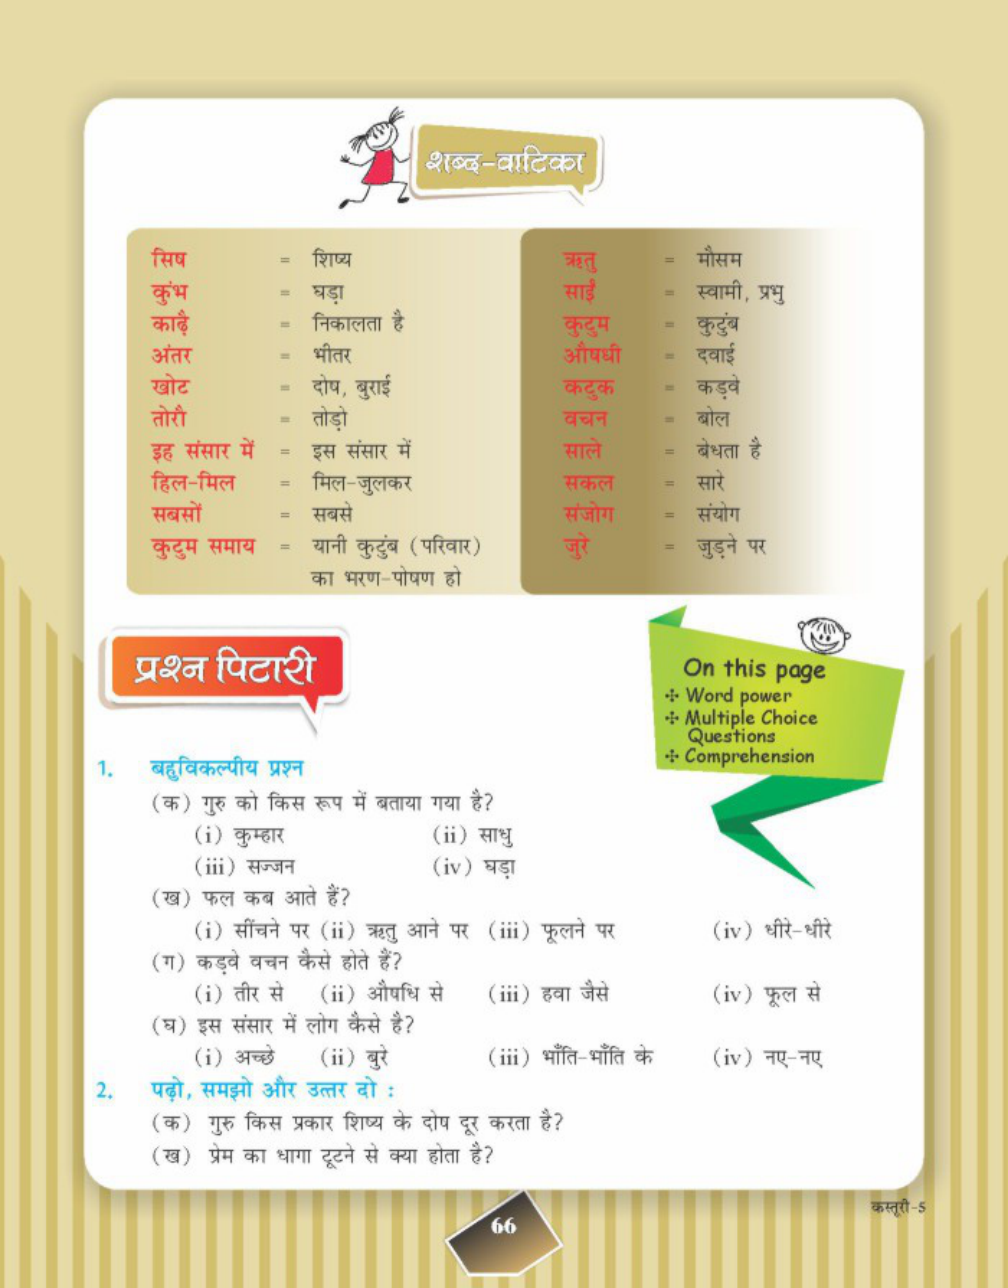 शब्द-वाटिका
सिष = शिष्य
कुंभ = घड़ा
काढ़ै = निकालता है
अंतर = भीतर
खोट = दोष, बुराई
तोरौ = तोड़ो
इह संसार में = इस संसार में
हिल-मिल = मिल-जुलकर
सबसों = सबसे
कुटुम समाय = यानी कुटुंब (परिवार)
का भरण-पोषण हो
ऋतु = मौसम
साईं = स्वामी, प्रभु
कुटुम = कुटुंब
औषधी = दवाई
कटुक = कड़वे
वचन = बोल
साले = बेधता है
सकल = सारे
संजोग = संयोग
जुरे = जुड़ने पर
प्रश्न पिटारी
On this page
✣ Word power
✣ Multiple Choice
Questions
✣ Comprehension
1. बहुविकल्पीय प्रश्न
(क) गुरु को किस रूप में बताया गया है?
(i) कुम्हार (ii) साधु
(iii) सज्जन (iv) घड़ा
(ख) फल कब आते हैं?
(i) सींचने पर (ii) ऋतु आने पर (iii) फूलने पर (iv) धीरे-धीरे
(ग) कड़वे वचन कैसे होते हैं?
(i) तीर से (ii) औषधि से (iii) हवा जैसे (iv) फूल से
(घ) इस संसार में लोग कैसे है?
(i) अच्छे (ii) बुरे (iii) भाँति-भाँति के (iv) नए-नए
2. पढ़ो, समझो और उत्तर दो :
(क) गुरु किस प्रकार शिष्य के दोष दूर करता है?
(ख) प्रेम का धागा टूटने से क्या होता है?
कस्तूरी-5
66